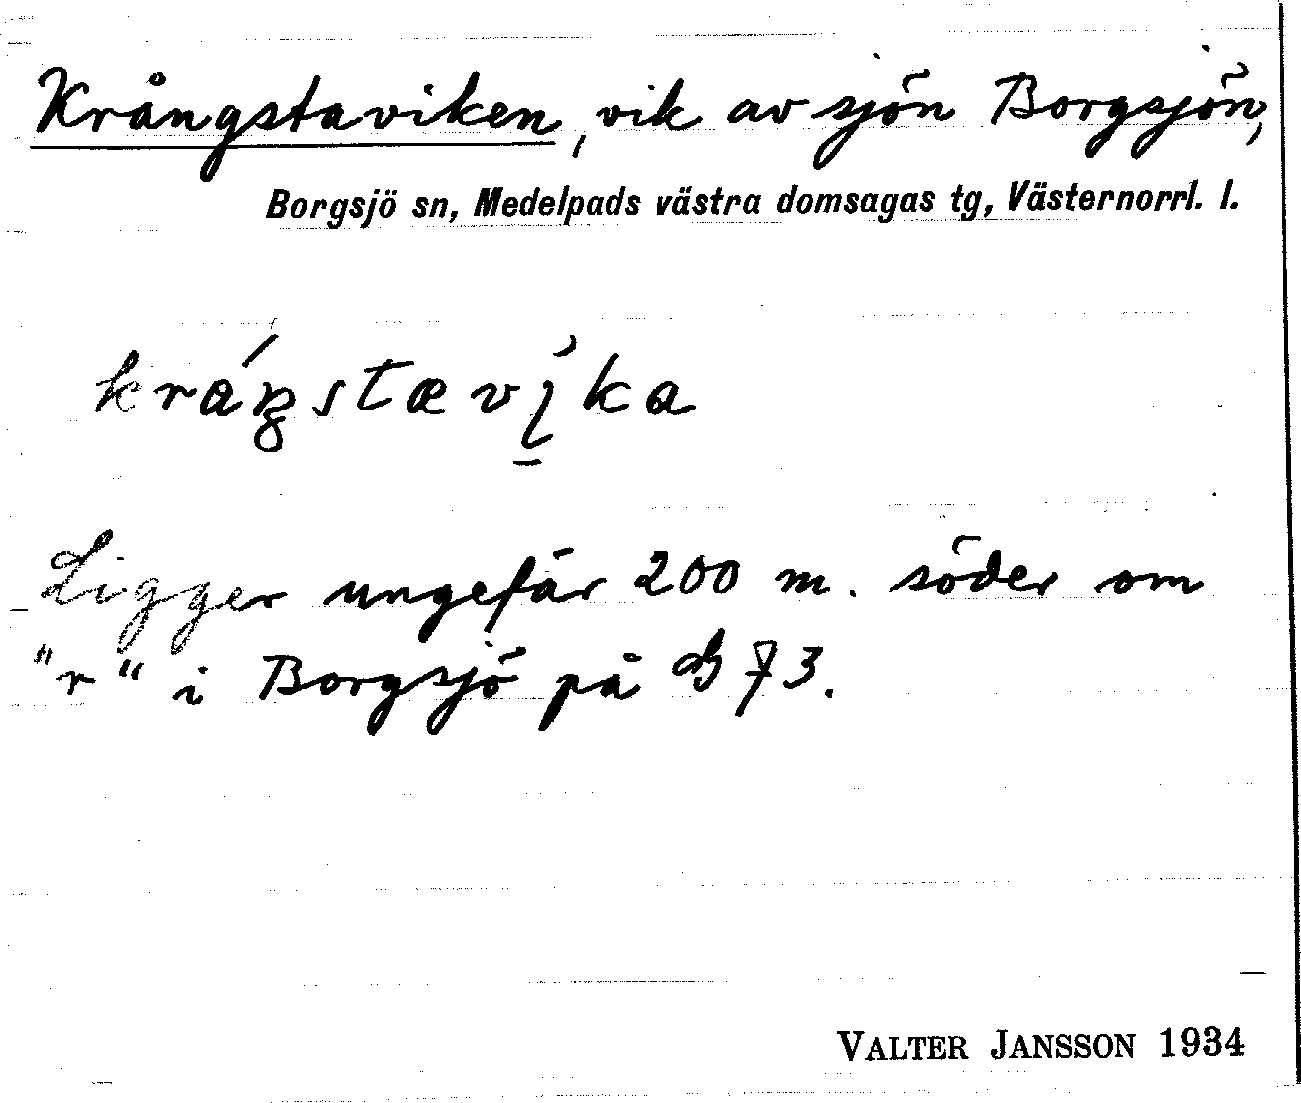 Krångstaviken, vik av sjön Borgsjön,
Borgsjö sn, Medelpads västra domsagas tg, Västernorrl. l.
Ligger ungefär 200 m. söder om
"r" i Borgsjö på B 73.
VALTER JANSSON 1934